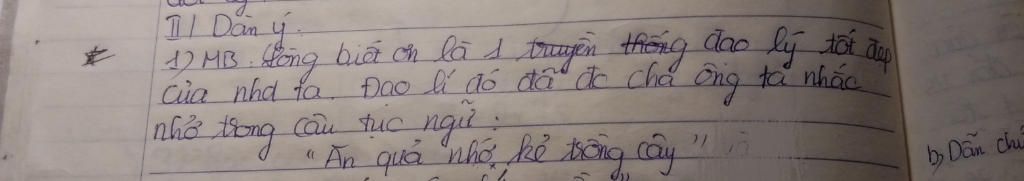 II/ Dàn ý.
1) MB. Lòng biết ơn là 1 truyền thống đạo lý tốt đẹp
của nhd ta. Đạo lí đó đã đc cha ông ta nhắc
nhở trong câu tục ngữ:
"Ăn quả nhớ kẻ trồng cây"
b, Dẫn chứ